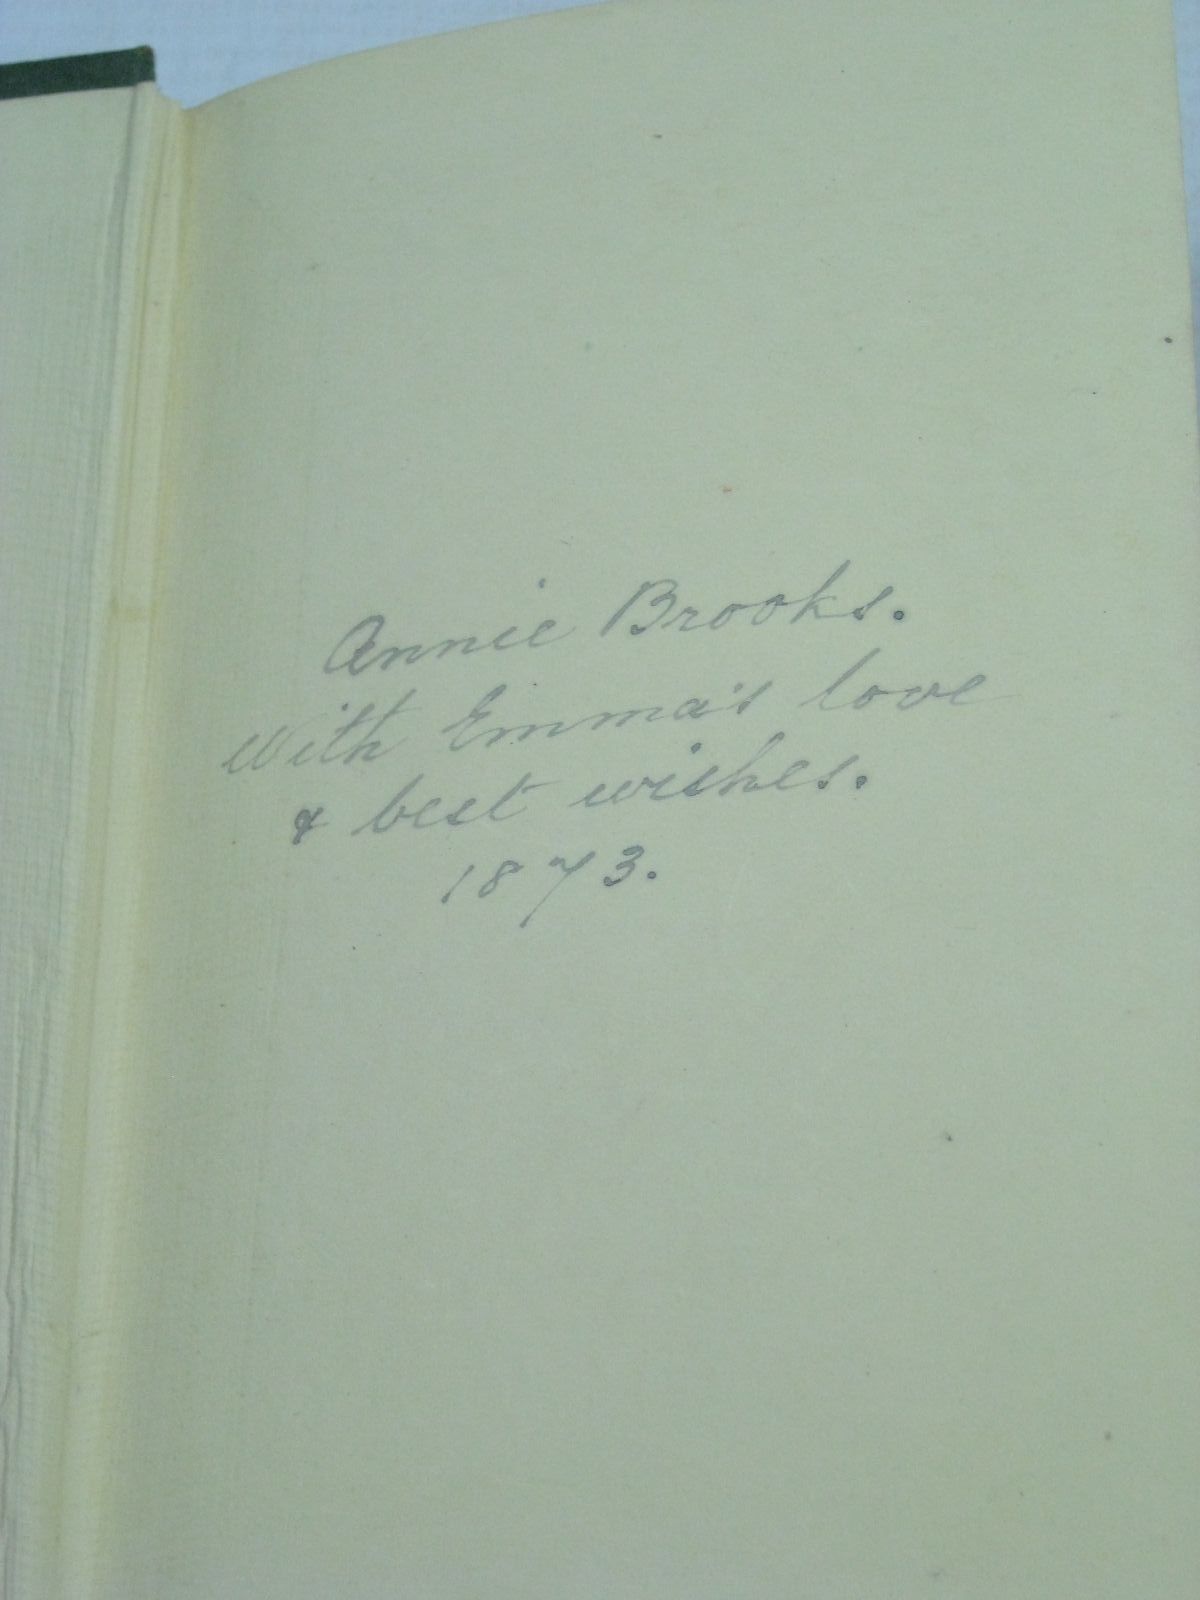 Annie Brooks.
With Emma's love
& best wishes.
1873.